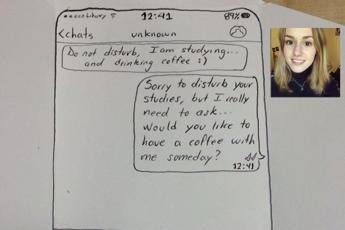 12:41
89%
<chats
unknown
Do not disturb, I am studying...
and drinking coffee :)
Sorry to disturb your
studies, but I really
need to ask...
Would you like to
have a coffee with
me someday?
12:41